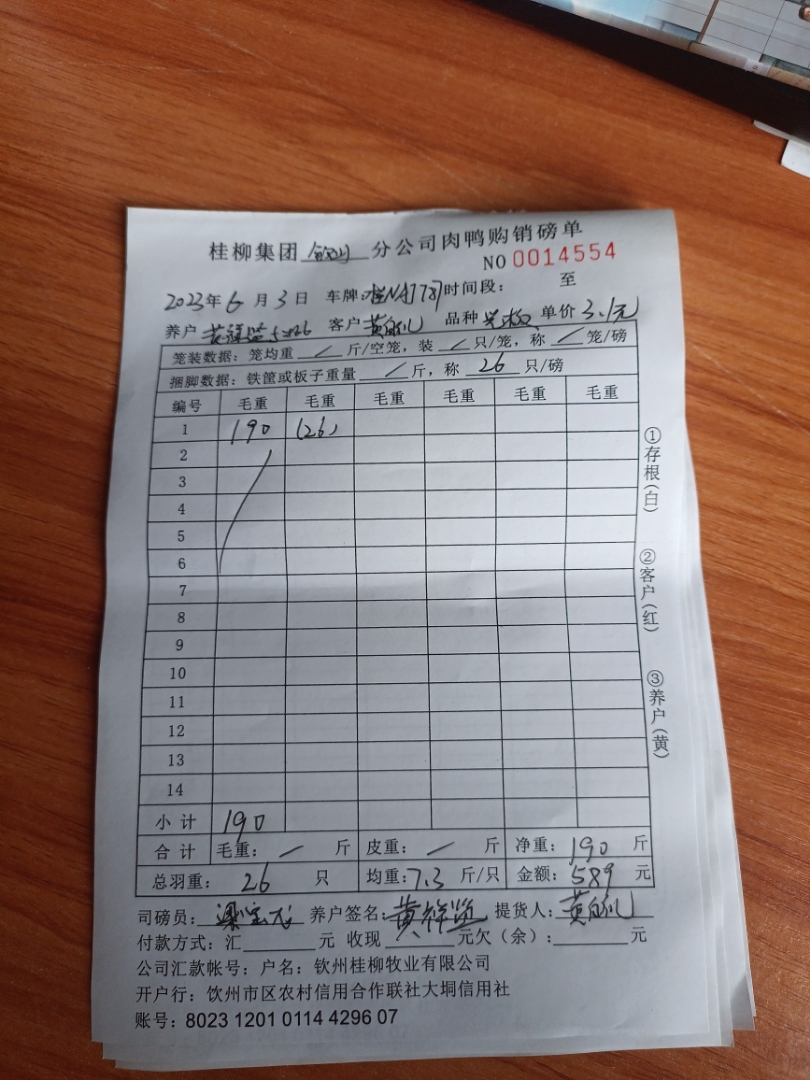 桂柳集团 钦州 分公司肉鸭购销磅单
NO 0014554
2023年 6 月 3 日 车牌: 桂NA1787 时间段: 至
养户 黄祥 客户 黄 品种 单价 3.1元
笼装数据: 笼均重 / 斤/空笼, 装 / 只/笼, 称 / 笼/磅
捆脚数据: 铁筐或板子重量 / 斤, 称 26 只/磅
编号 毛重 毛重 毛重 毛重 毛重 毛重
1 190 (26)
2
3
4
5
6
7
8
9
10
11
12
13
14
小计 190
合计 毛重: / 斤 皮重: / 斤 净重: 190 斤
总羽重: 26 只 均重: 7.3 斤/只 金额: 589 元
司磅员: 梁宝龙 养户签名: 黄祥 提货人: 黄
付款方式: 汇 元 收现 元欠(余): 元
公司汇款帐号: 户名: 钦州桂柳牧业有限公司
开户行: 饮州市区农村信用合作联社大垌信用社
账号: 8023 1201 0114 4296 07
①存根(白)
②客户(红)
③养户(黄)